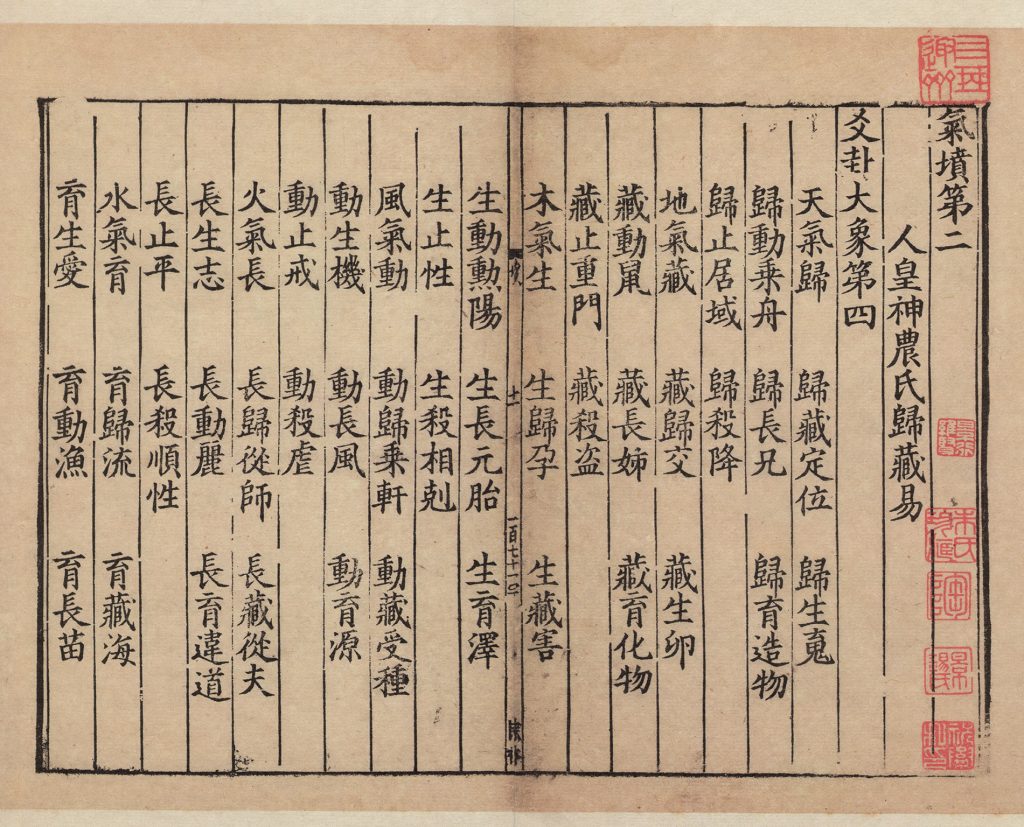 氣墳第二
人皇神農氏歸藏易
爻卦大象第四
天氣歸　歸藏定位　歸生䰟
歸動乘舟　歸長兄　歸育造物
歸止居域　歸殺降
地氣藏　藏歸交　藏生卵
藏動鼠　藏長姊　藏育化物
藏止重門　藏殺盗
木氣生　生歸孕　生藏害
十一
一百七十一
生動勳陽　生長元胎　生育澤
生止性　生殺相剋
風氣動　動歸乘軒　動藏受種
動生機　動長風　動育源
動止戒　動殺虐
火氣長　長歸從師　長藏從夫
長生志　長動麗　長育違道
長止平　長殺順性
水氣育　育歸流　育藏海
育生愛　育動漁　育長苗